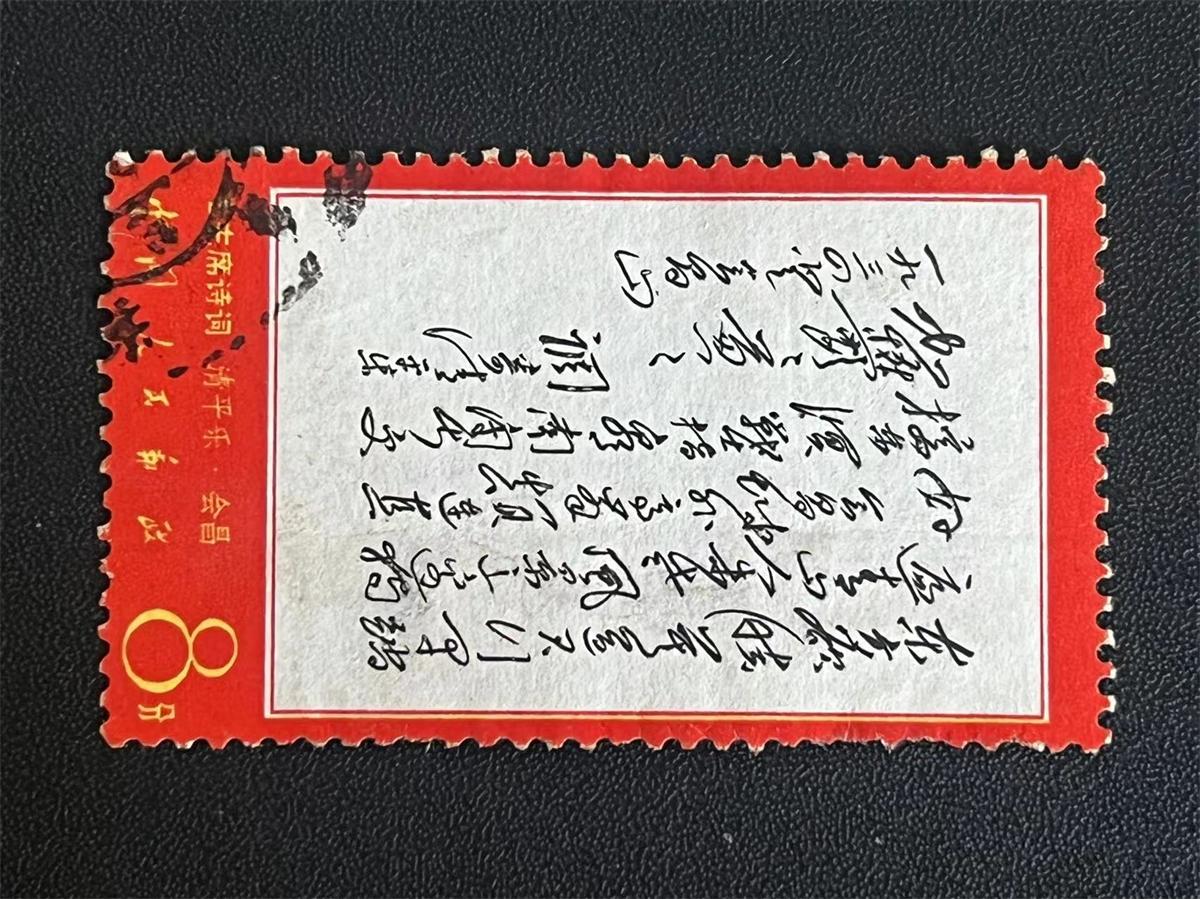 东方欲晓莫道君行早踏
遍青山人未老风景这边独
好会昌城外高峰颠连直
接东溟战士指看南粤更
加郁々葱々 调寄清平乐
一九三四
主席诗词 清平乐·会昌
中国人民邮政
8分